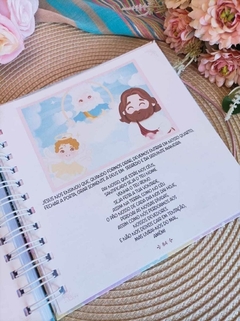 JESUS NOS ENSINOU QUE, QUANDO FORMOS ORAR, DEVEMOS ENTRAR EM NOSSO QUARTO,
FECHAR A PORTA, ORAR SOMENTE A DEUS EM SEGREDO E DA SEGUINTE MANEIRA:
PAI NOSSO, QUE ESTÁS NOS CÉUS,
SANTIFICADO SEJA O TEU NOME.
VENHA O TEU REINO,
SEJA FEITA A TUA VONTADE,
ASSIM NA TERRA COMO NO CÉU.
O PÃO NOSSO DE CADA DIA NOS DAI HOJE,
PERDOA AS NOSSAS DÍVIDAS,
ASSIM COMO NÓS PERDOAMOS
AOS NOSSOS DEVEDORES.
E NÃO NOS DEIXES CAIR EM TENTAÇÃO,
MAS LIVRA-NOS DO MAL.
AMÉM!